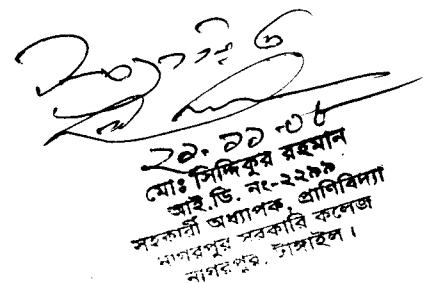 ২৯.১১.০৮
মোঃ সিদ্দিকুর রহমান
আই.ডি. নং-২২৯৯
সহকারী অধ্যাপক, প্রাণিবিদ্যা
নাগরপুর সরকারি কলেজ
নাগরপুর, টাঙ্গাইল।